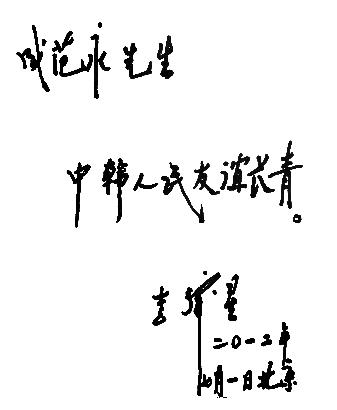 成范永先生
中韩人民友谊长青。
李肇星
二0一二年
月一日北京